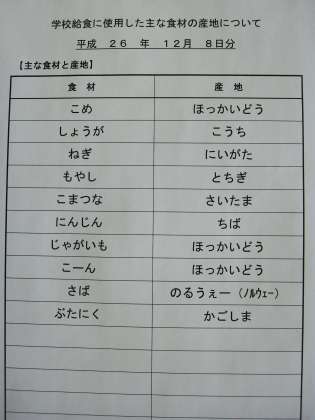 学校給食に使用した主な食材の産地について
平成 26 年 12月 8日分
【主な食材と産地】
食 材 産 地
こめ ほっかいどう
しょうが こうち
ねぎ にいがた
もやし とちぎ
こまつな さいたま
にんじん ちば
じゃがいも ほっかいどう
こーん ほっかいどう
さば のるうぇー (ﾉﾙｳｪｰ)
ぶたにく かごしま